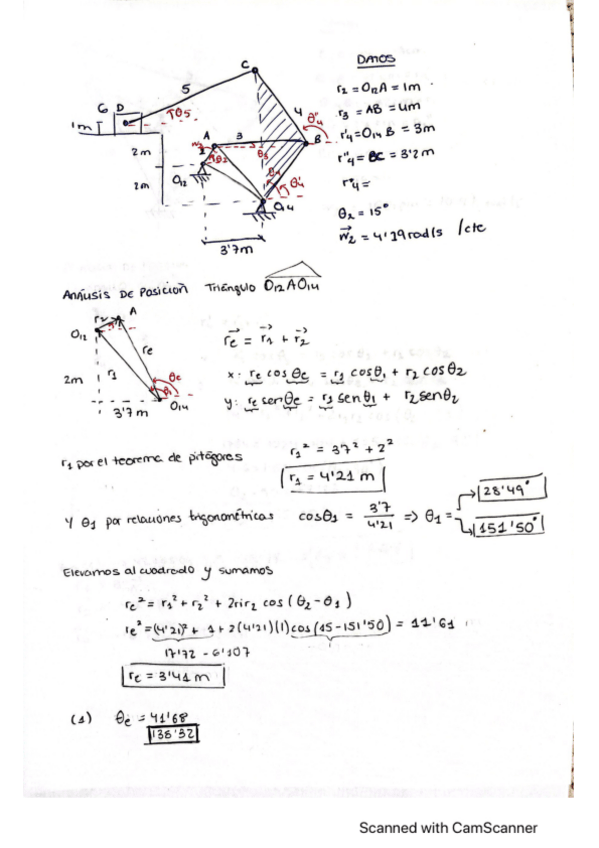 DATOS
r2 = O12A = 1m
r3 = AB = 4m
r'4 = O14 B = 3m
r''4 = BC = 3'2 m
r°4 =
θ2 = 15°
w2 = 4'19 rad/s /cte
C
5
6 D
θ5
1m
4
θ''4
A
3
B
2m
2
θ2
θ3
O12
2m
θ4
θ'4
O14
3'7 m
ANÁLISIS DE POSICIÓN Triángulo O12AO14
r2
A
O12
re
2m
r1
θe
θ1
3'7 m
O14
re = r1 + r2
x: re cos θe = r1 cos θ1 + r2 cos θ2
y: re sen θe = r1 sen θ1 + r2 sen θ2
r1 por el teorema de pitágores
r1² = 37² + 2²
r1 = 4'21 m
Y θ1 por relaciones trigonométricas cosθ1 = 3'7/4'21 => θ1 =
28'49°
151'50°
Elevamos al cuadrado y sumamos
re² = r1² + r2² + 2r1r2 cos (θ2 - θ1)
re² = (4'21)² + 1 + 2(4'21)(1) cos (15 - 151'50) = 11'61
17'72 - 6'107
re = 3'41 m
(1) θe = 41'68
138'32
Scanned with CamScanner